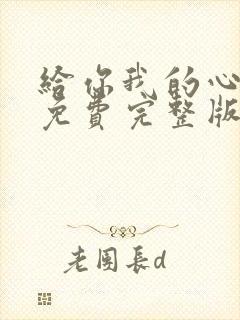 給你我的心
免費完整版
老園長d